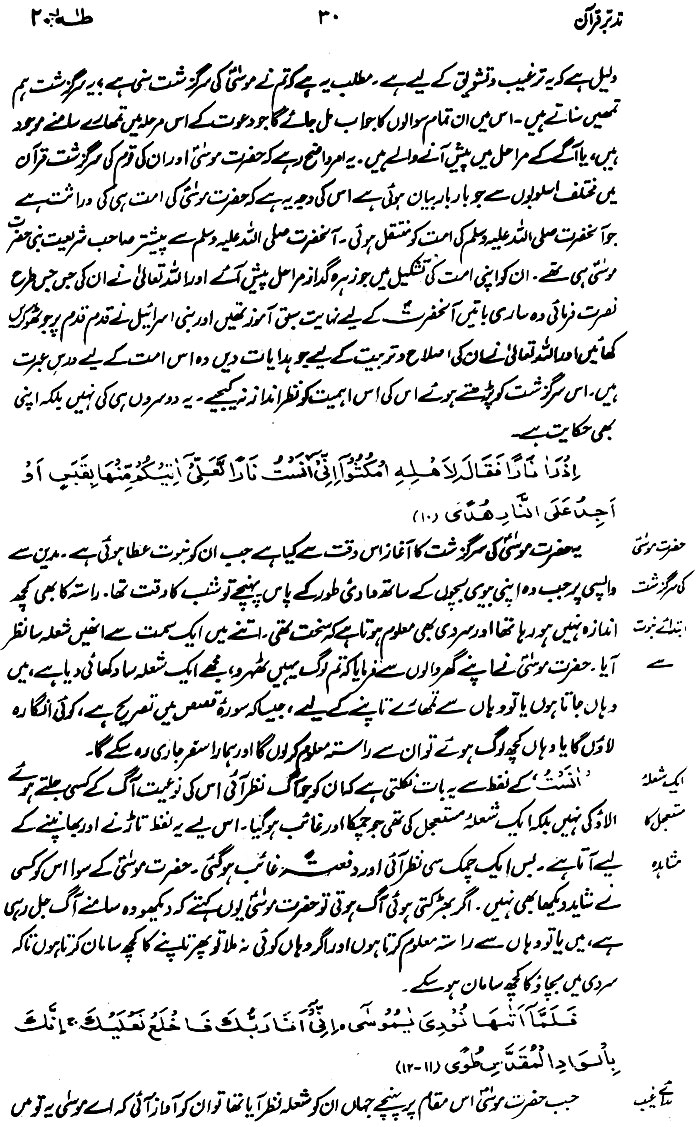 تدبر قرآن ۳۰ طٰہٰ ۲۰
دلیل ہے کہ یہ ترغیب و تشویق کے لیے ہے۔ مطلب یہ ہے کہ تم نے موسیٰؑ کی سرگزشت سنی ہے؟ یہ سرگزشت ہم
تمھیں سناتے ہیں۔ اس میں ان تمام سوالوں کا جواب مل جائے گا جو دعوت کے اس مرحلہ میں تمھارے سامنے موجود
ہیں، یا آگے کے مراحل میں پیش آنے والے ہیں۔ یہ امر واضح رہے کہ حضرت موسیٰؑ اور ان کی قوم کی سرگزشت قرآن
میں مختلف اسلوبوں سے جو بار بار بیان ہوئی ہے اس کی وجہ یہ ہے کہ حضرت موسیٰؑ کی امت ہی کی وراثت ہے
جو آنحضرت صلی اللہ علیہ وسلم کی امت کو منتقل ہوئی۔ آنحضرت صلی اللہ علیہ وسلم سے پیشتر صاحب شریعت نبی حضرت
موسیٰؑ ہی تھے۔ ان کو اپنی امت کی تشکیل میں جو زہرہ گداز مراحل پیش آئے اور اللہ تعالیٰ نے ان کی جس جس طرح
نصرت فرمائی وہ ساری باتیں آنحضرتؐ کے لیے نہایت سبق آموز تھیں اور بنی اسرائیل نے قدم قدم پر جو ٹھوکریں
کھائیں اور اللہ تعالیٰ نے ان کی اصلاح و تربیت کے لیے جو ہدایات دیں وہ اس امت کے لیے درس عبرت
ہیں۔ اس سرگزشت کو پڑھتے ہوئے اس کی اس اہمیت کو نظر انداز نہ کیجیے۔ یہ دوسروں ہی کی نہیں بلکہ اپنی
بھی حکایت ہے۔
اِذْ رَاٰ نَارًا فَقَالَ لِاَهْلِهِ امْكُثُوْٓا اِنِّيْٓ اٰنَسْتُ نَارًا لَّعَلِّيْٓ اٰتِيْكُمْ مِّنْهَا بِقَبَسٍ اَوْ
اَجِدُ عَلَى النَّارِ هُدًى (۱۰)
حضرت موسیٰؑ یہ حضرت موسیٰؑ کی سرگزشت کا آغاز اس وقت سے کیا ہے جب ان کو نبوت عطا ہوئی ہے۔ مدین سے
کی سرگزشت واپسی پر جب وہ اپنی بیوی بچوں کے ساتھ وادئ طور کے پاس پہنچے تو شب کا وقت تھا۔ راستہ کا بھی کچھ
ابتدائے نبوت اندازہ نہیں ہو رہا تھا اور سردی بھی معلوم ہوتا ہے کہ سخت تھی۔ اتنے میں ایک سمت سے انھیں شعلہ سا نظر
سے آیا۔ حضرت موسیٰؑ نے اپنے گھر والوں سے فرمایا کہ تم لوگ یہیں ٹھہرو، مجھے ایک شعلہ سا دکھائی دیا ہے، میں
وہاں جاتا ہوں یا تو وہاں سے تمھارے تاپنے کے لیے، جیسا کہ سورۂ قصص میں تصریح ہے، کوئی انگارہ
لاؤں گا یا وہاں کچھ لوگ ہوئے تو ان سے راستہ معلوم کر لوں گا اور ہمارا سفر جاری رہ سکے گا۔
ایک شعلۂ 'اٰنَسْتُ' کے لفظ سے یہ بات نکلتی ہے کہ ان کو جو آگ نظر آئی اس کی نوعیت آگ کے کسی جلتے ہوئے
مستعجل کا الاؤ کی نہیں بلکہ ایک شعلۂ مستعجل کی تھی جو چمکا اور غائب ہو گیا۔ اس لیے یہ لفظ تاڑنے اور بھانپنے کے
مشاہدہ لیے آتا ہے۔ بس ایک چمک سی نظر آئی اور دفعتہً غائب ہو گئی۔ حضرت موسیٰؑ کے سوا اس کو کسی
نے شاید دیکھا بھی نہیں۔ اگر بھڑکتی ہوئی آگ ہوتی تو حضرت موسیٰؑ یوں کہتے کہ دیکھو وہ سامنے آگ جل رہی
ہے، میں یا تو وہاں سے راستہ معلوم کرتا ہوں اور اگر وہاں کوئی نہ ملا تو پھر تاپنے کا کچھ سامان کرتا ہوں تاکہ
سردی میں بچاؤ کا کچھ سامان ہو سکے۔
فَلَمَّآ اَتٰىهَا نُوْدِيَ يٰمُوْسٰى ه اِنِّيْٓ اَنَا رَبُّكَ فَاخْلَعْ نَعْلَيْكَ ۚ اِنَّكَ
بِالْوَادِ الْمُقَدَّسِ طُوًى (۱۱-۱۲)
ندائے غیب جب حضرت موسیٰؑ اس مقام پر پہنچے جہاں ان کو شعلہ نظر آیا تھا تو ان کو آواز آئی کہ اے موسیٰ یہ تو میں